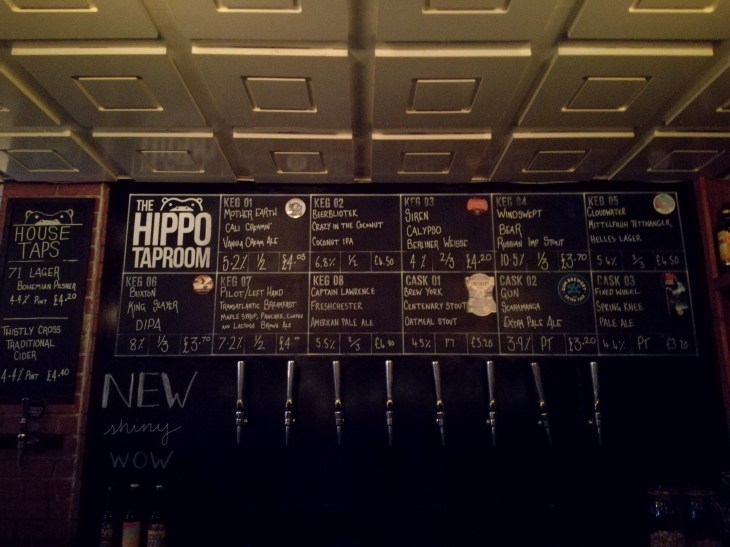 HOUSE
TAPS
71 LAGER
BOHEMIAN PILSNER
4.4% PINT £4.20
THISTLY CROSS
TRADITIONAL
CIDER
4.4% PINT £4.40
THE
HIPPO
TAPROOM
KEG 01
MOTHER EARTH
CALI CREAMIN'
VANILLA CREAM ALE
5.2% 1/2 £4.05
KEG 02
BEERBLIOTEK
CRAZY IN THE COCONUT
COCONUT IPA
6.8% 1/2
KEG 03
SIREN
CALYPSO
BERLINER WEISSE
4% 2/3 £4.20
KEG 04
WINDSWEPT
BEAR
RUSSIAN IMP STOUT
10.5% 1/3 £3.70
KEG 05
CLOUDWATER
MITTELFRÜH TETTNANGER,
HELLES LAGER.
5.4% 2/3 £4.50
KEG 06
BUXTON
KING SLAYER
DIPA
8% 1/3 £3.70
KEG 07
PILOT/LEFT HAND
TRANSATLANTIC BREAKFAST
MAPLE SYRUP, PANCAKE, COFFEE
AND LACTOSE BROWN ALE
7.2% 1/2
KEG 08
CAPTAIN LAWRENCE
FRESHCHESTER
AMERICAN PALE ALE
5.5%
CASK 01
BREW YORK
CENTENARY STOUT
OATMEAL STOUT
4.5% PT £3.20
CASK 02
GUN
SCARAMANGA
EXTRA PALE ALE
3.9% PT £3.20
CASK 03
FIXED WHEEL
SPRING KNEE
PALE ALE
4.4% PT £3.20
NEW
shiny
WOW